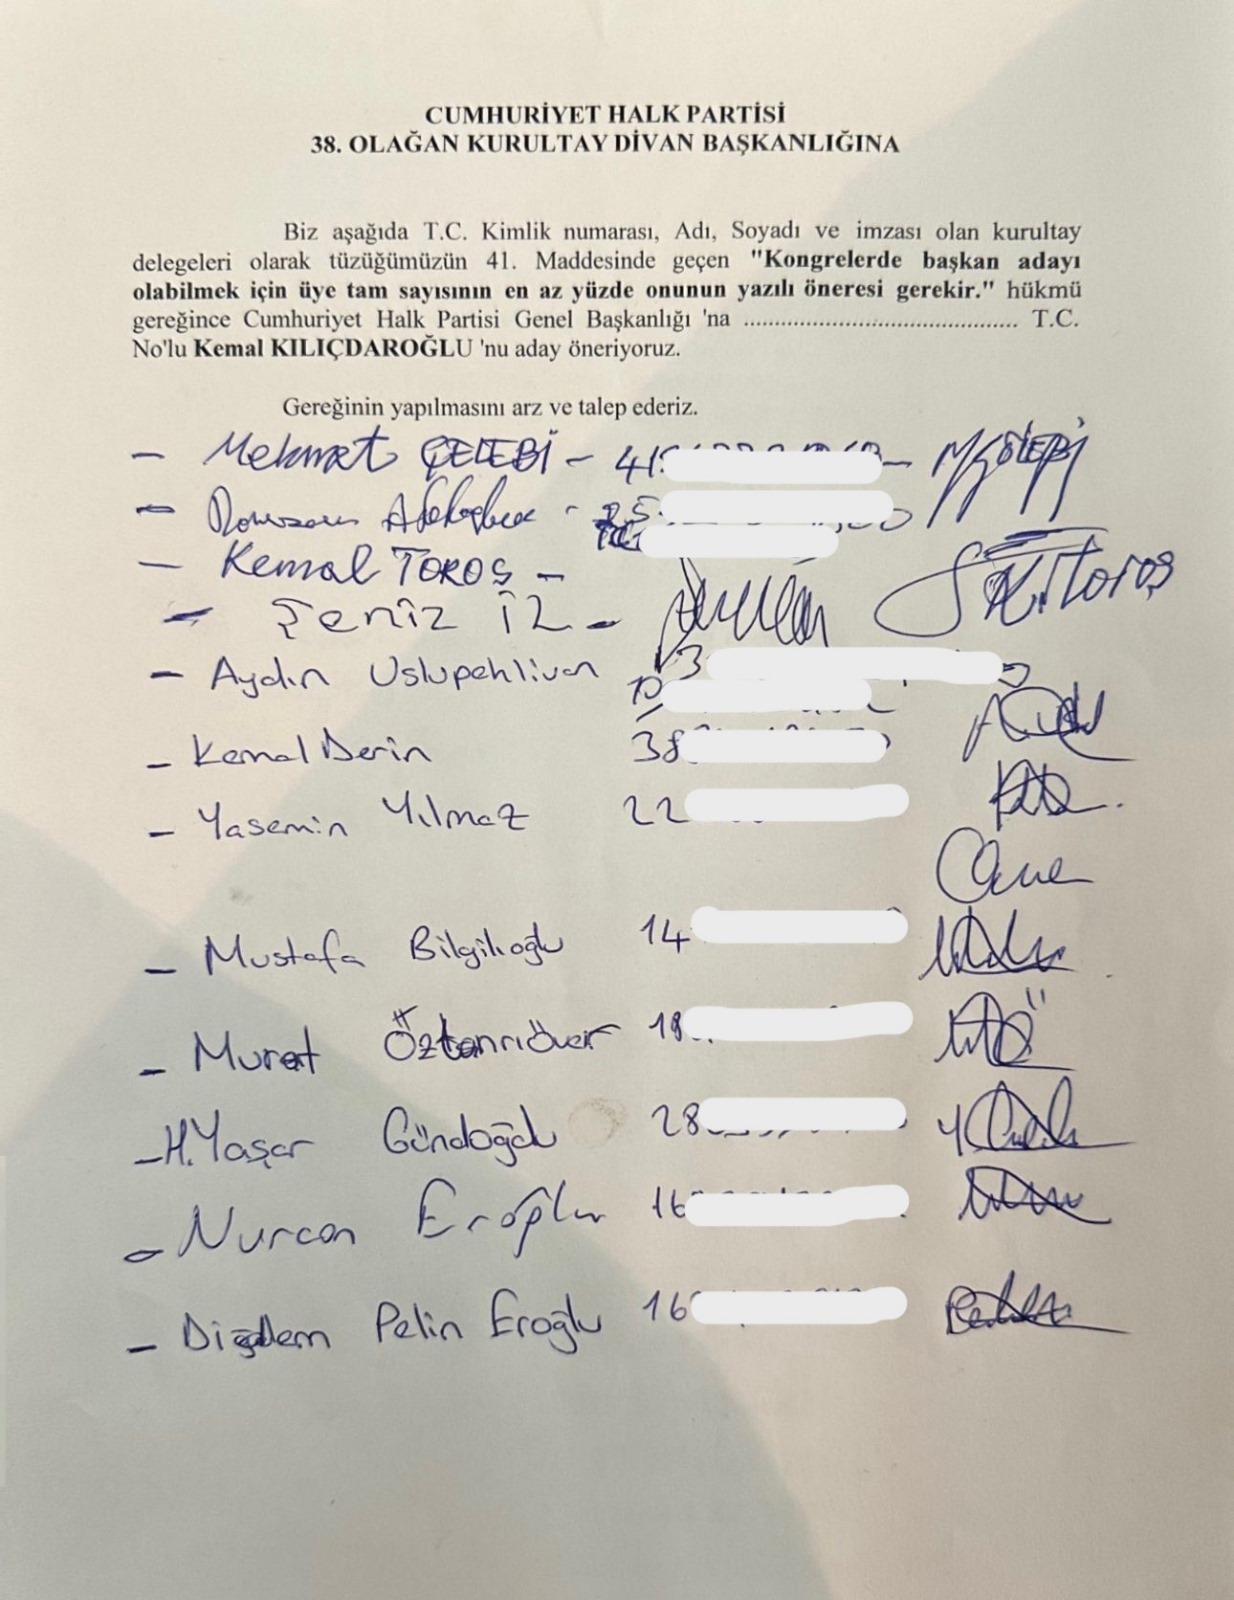 CUMHURİYET HALK PARTİSİ
38. OLAĞAN KURULTAY DİVAN BAŞKANLIĞINA
Biz aşağıda T.C. Kimlik numarası, Adı, Soyadı ve imzası olan kurultay
delegeleri olarak tüzüğümüzün 41. Maddesinde geçen "Kongrelerde başkan adayı
olabilmek için üye tam sayısının en az yüzde onunun yazılı öneresi gerekir." hükmü
gereğince Cumhuriyet Halk Partisi Genel Başkanlığı 'na ............................................ T.C.
No'lu Kemal KILIÇDAROĞLU 'nu aday öneriyoruz.
Gereğinin yapılmasını arz ve talep ederiz.
- Mehmet ÇELEBİ - 41
-
- Kemal TOROS -
- Şeniz İL -
- Aydın Uslupehlivan
- Kemal Derin 38
- Yasemin Yılmaz 22
- Mustafa Bilgilioğlu 14
- Murat Öztanrıöver 18
- H.Yaşar Gündoğdu 28
- Nurcan Eroğlu 16
- Diğdem Pelin Eroğlu 16